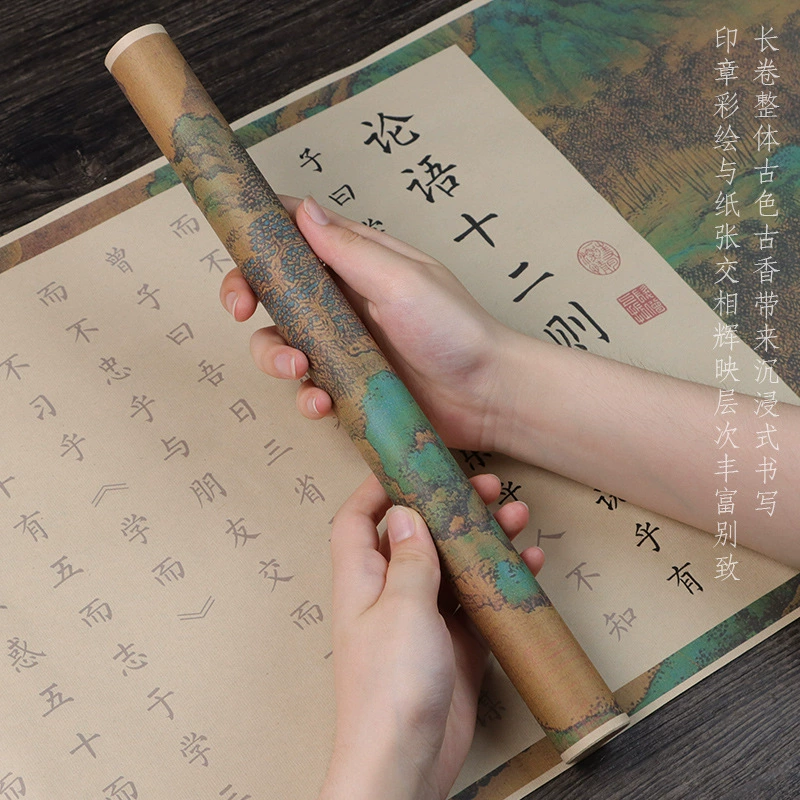 长卷整体古色古香带来沉浸式书写
印章彩绘与纸张交相辉映层次丰富别致
论语十二则
子曰学 乎有
而不 乎人不知
曾子曰吾日三省
而不忠乎与朋友交而
不习乎《学而》
十有五而志于学三
惑五十而
而